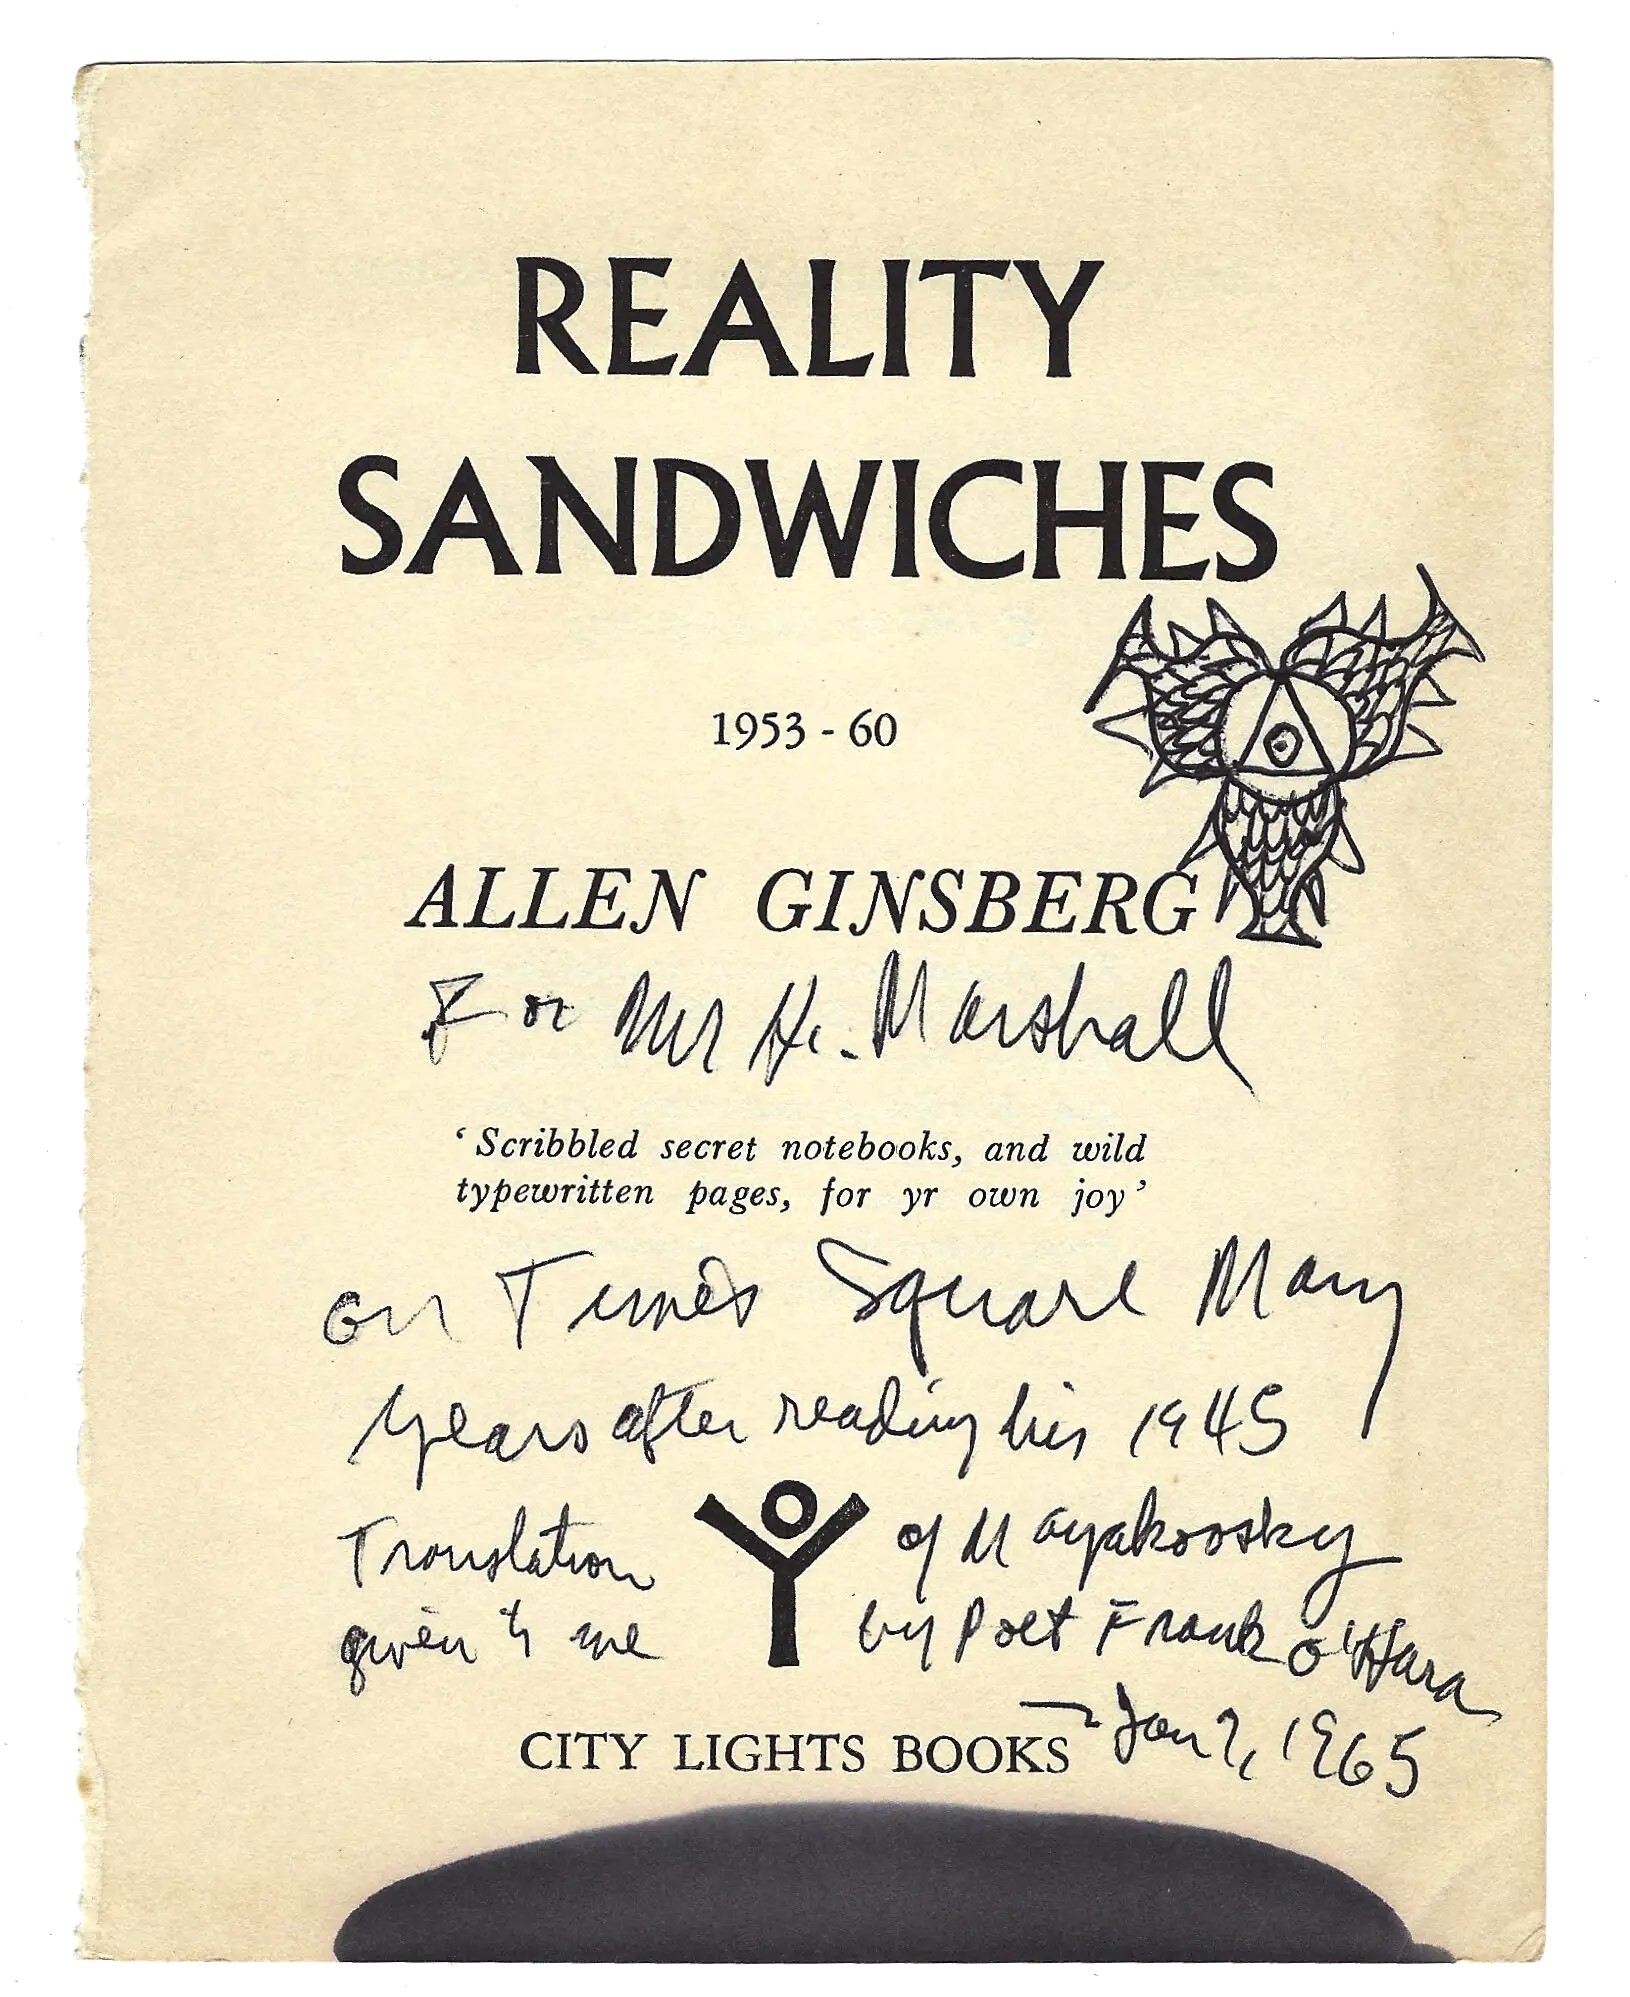 REALITY
SANDWICHES
1953 - 60
ALLEN GINSBERG
For Mr H. Marshall
‘Scribbled secret notebooks, and wild
typewritten pages, for yr own joy’
on Times Square Many
years after reading his 1945
Translation of Mayakovsky
given to me by Poet Frank O'Hara
— Jan 7, 1965
CITY LIGHTS BOOKS